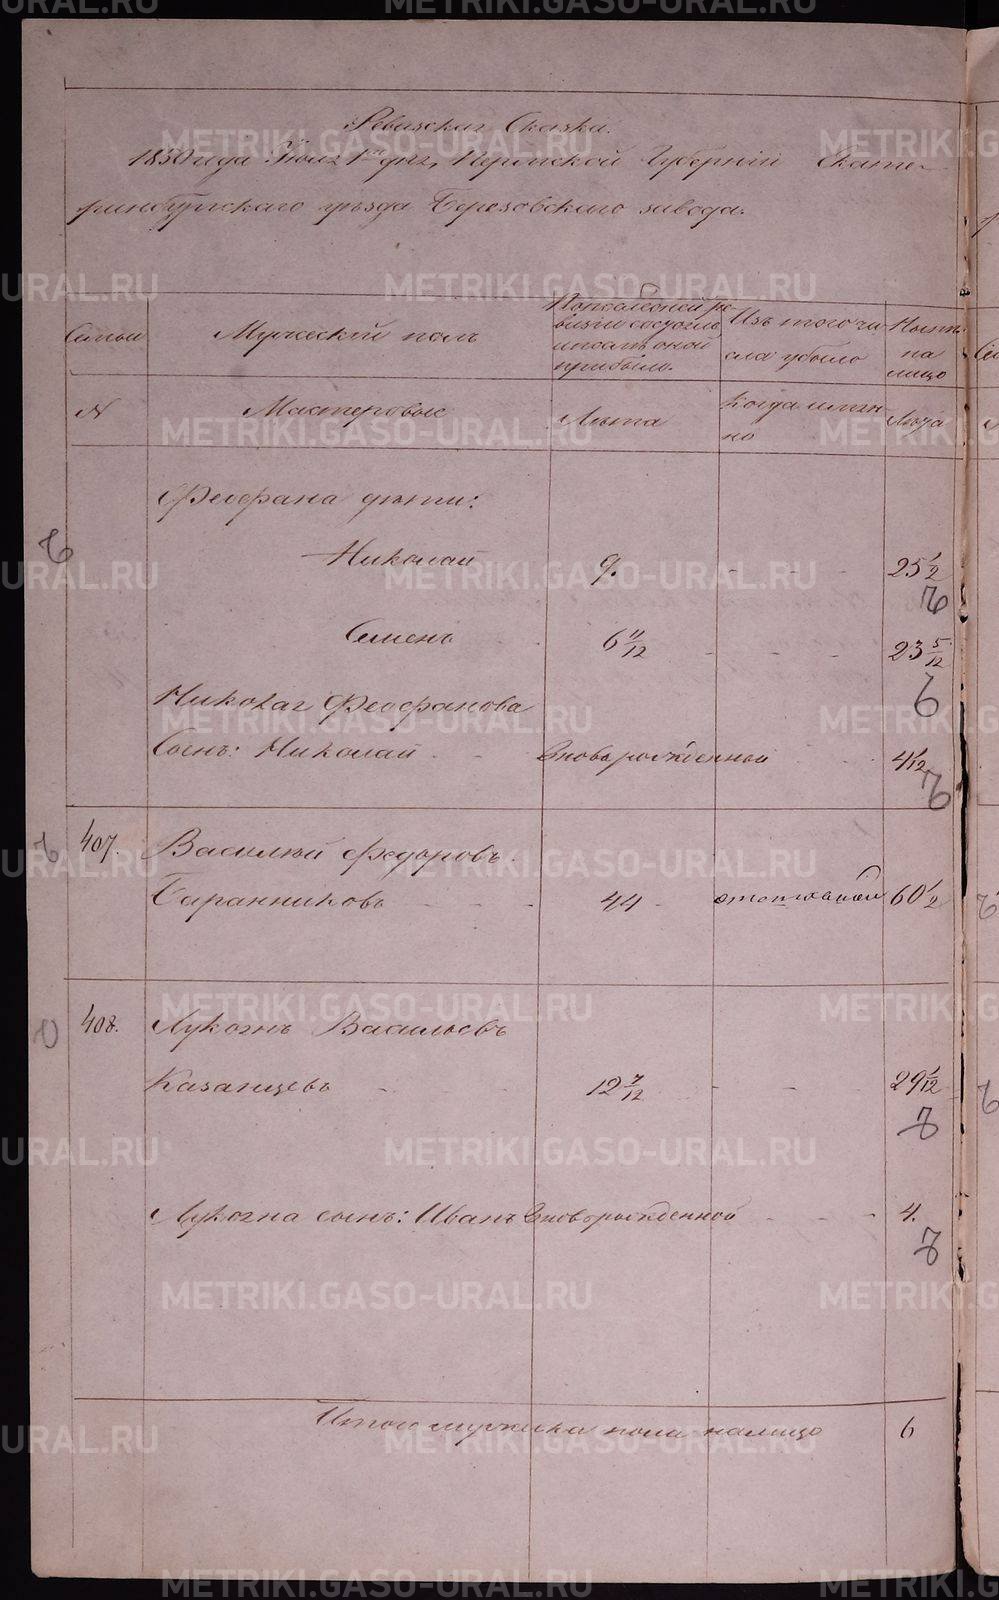 Ревизская Сказка.
1850 года Июля 1го дня, Пермской Губернии Екате-
ринбургскаго уѣзда Березовскаго завода.
Семьи
Мужеский полъ
По последней ре-
визии состояло
и послѣ оной
прибыло.
Изъ того чи-
сла убыло
Нынѣ
на
лицо
N
Мастеровые
Лѣта
Когда имян-
но
Лѣта
Феофана дѣти:
Николай 9. 25 1/2
Семенъ 6 11/12 23 5/12
Николая Феофанова
Сынъ: Николай вновь рожденный 4 1/12
407. Василий Федоровъ
Баранниковъ 44 отставной 60 1/2
408. Лукоянъ Васильевъ
Казанцевъ 12 7/12 29 1/12
Лукояна сынъ: Иванъ новорожденной 4.
Итого мужеска пола налицо 6
METRIKI.GASO-URAL.RU